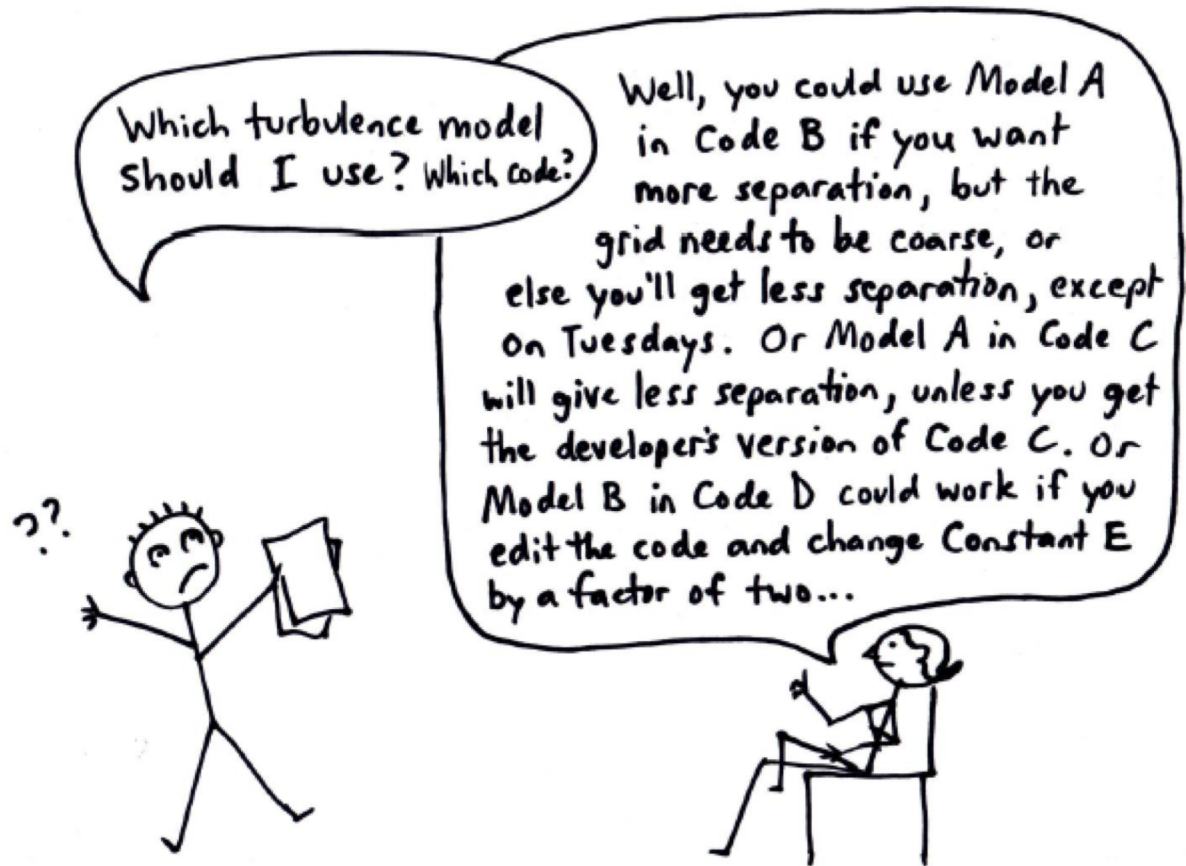 Which turbulence model
should I use? Which code?
Well, you could use Model A
in Code B if you want
more separation, but the
grid needs to be coarse, or
else you'll get less separation, except
on Tuesdays. Or Model A in Code C
will give less separation, unless you get
the developer's version of Code C. Or
Model B in Code D could work if you
edit the code and change Constant E
by a factor of two...
??